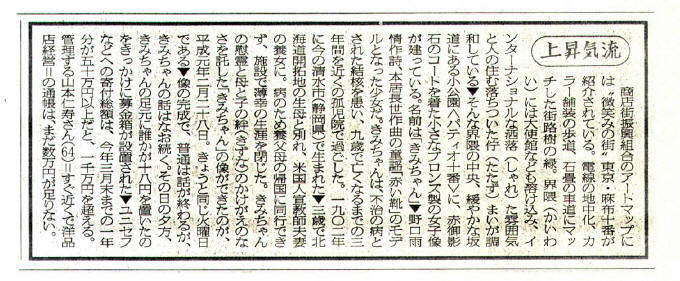 上昇気流
商店街振興組合のアートマップに
は“微笑みの街”東京・麻布十番が
紹介されている。電線の地中化、カ
ラー舗装の歩道、石畳の車道にマッ
チした街路樹の緑。界隈（かいわ
い）には大使館なども溶け込み、イ
ンターナショナルな洒落（しゃれ）た雰囲気
と人の住む落ちついた佇（たたず）まいが調
和している▼そんな界隈の中央、緩やかな坂
道にある小公園〈パティオ十番〉に、赤御影
石のコートを着た小さなブロンズ製の女子像
が建っている。名前は「きみちゃん」▼野口雨
情作詩、本居長世作曲の童謡「赤い靴」のモデ
ルとなった少女だ。きみちゃんは、不治の病と
された結核を患い、九歳で亡くなるまでの三
年間を近くの孤児院で過ごした。一九〇二年
に今の清水市（静岡県）で生まれた▼三歳で北
海道開拓地の生母と別れ、米国人宣教師夫妻
の養女に。病のため養父母の帰国に同行でき
ず、施設で薄幸の生涯を閉じた。きみちゃん
の慰霊と母と子の絆（きずな）のかけがえのな
さを託した「きみちゃん」の像ができたのが、
平成元年二月二十八日。きょうと同じ火曜日
である▼像の完成で、普通は話が終わるが、
きみちゃんの話はなお続く。その日の夕方、
きみちゃんの足元に誰かが十八円を置いたの
をきっかけに募金箱が設置された▼ユニセフ
などへの寄付総額は、今年三月末までの一年
分が五十万円以上だと、一千万円を超える。
管理する山本仁寿さん（64）＝すぐ近くで洋品
店経営＝の通帳は、まだ数万円が足りない。